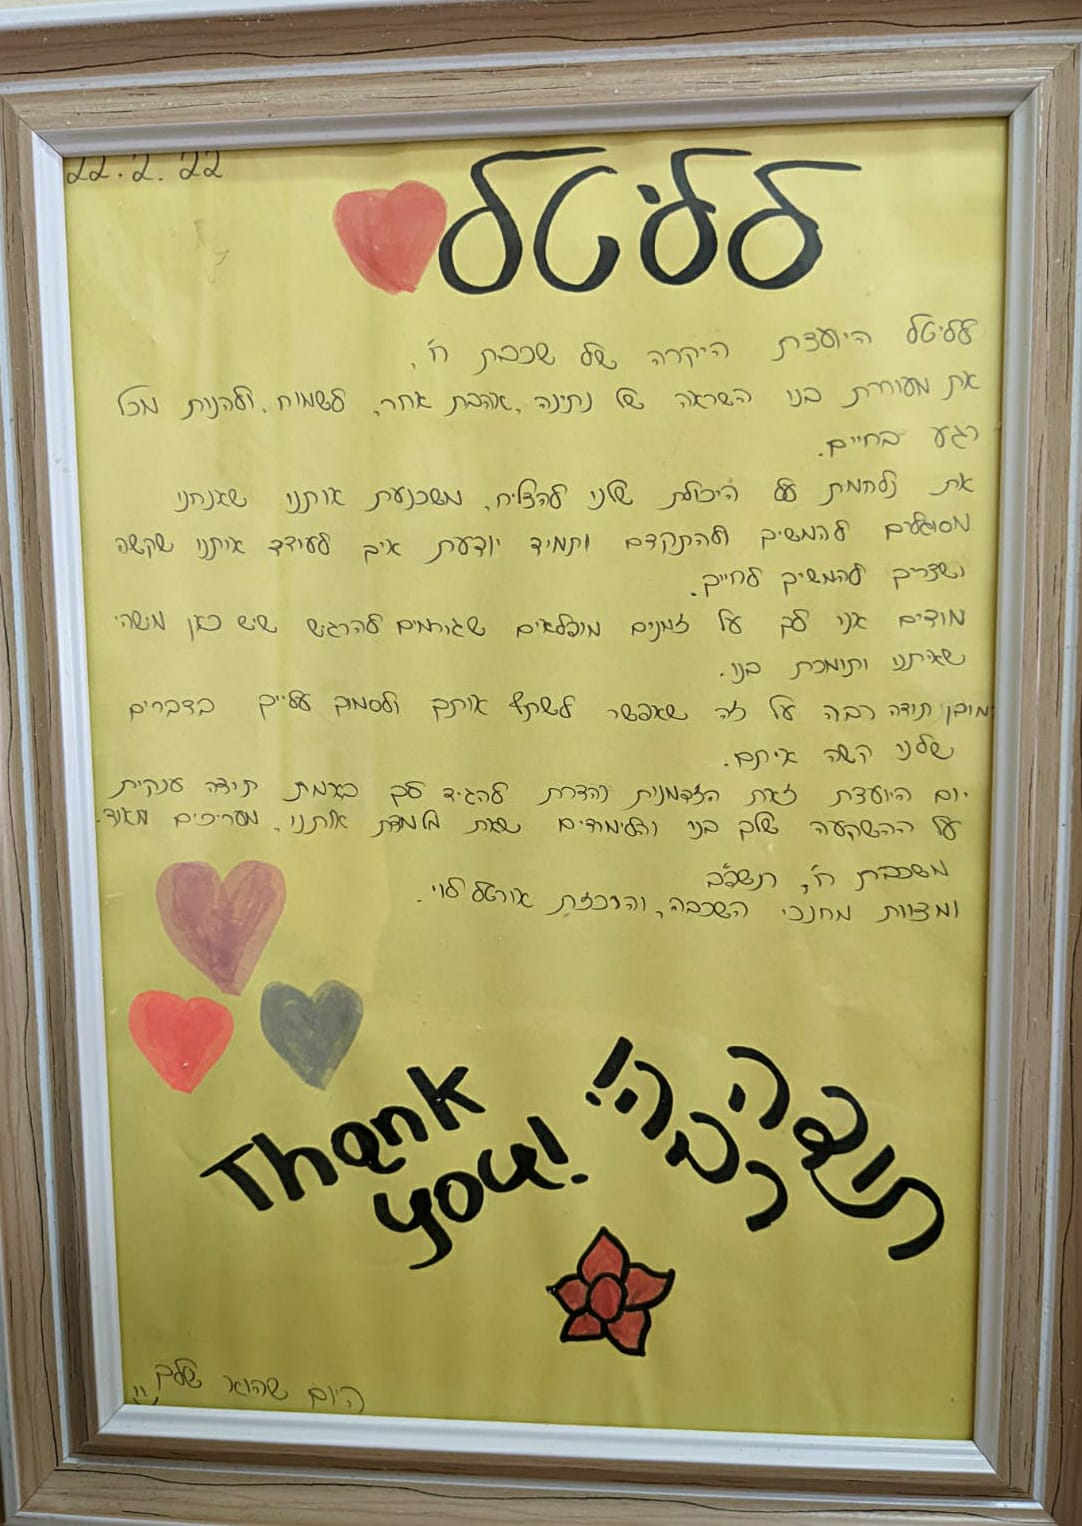 22.2.22
לליטל
לליטל היועצת היקרה של שכבת ח',
את מעוררת בנו השראה של נתינה, אהבת אחר, לשמוח, ולהנות מכל
רגע בחיים.
את נלחמת על היכולת שלנו להצליח, משכנעת אותנו שאנחנו
מסוגלים להמשיך ולהתקדם ותמיד יודעת איך לעודד אותנו שקשה
ושצריך להמשיך לחייך.
מודים אנו לך על זמנים מופלאים שגורמים להרגיש שיש כאן מישהי
שאיתנו ותומכת בנו.
מובן תודה רבה על זה שאפשר לשתף אותך ולסמוך עלייך בדברים
שלנו קשה איתם.
יום היועצת זאת הזדמנות נהדרת להגיד לך באמת תודה ענקית
על ההשקעה שלך בנו והלימודים שאת מלמדת אותנו, מעריכים מאוד.
משכבת ח', תשפ"ב
ומצוות מחנכי השכבה, והרכזת אורטל לוי.
תודה
רבה!
Thank
you!
היום שהוא שלך